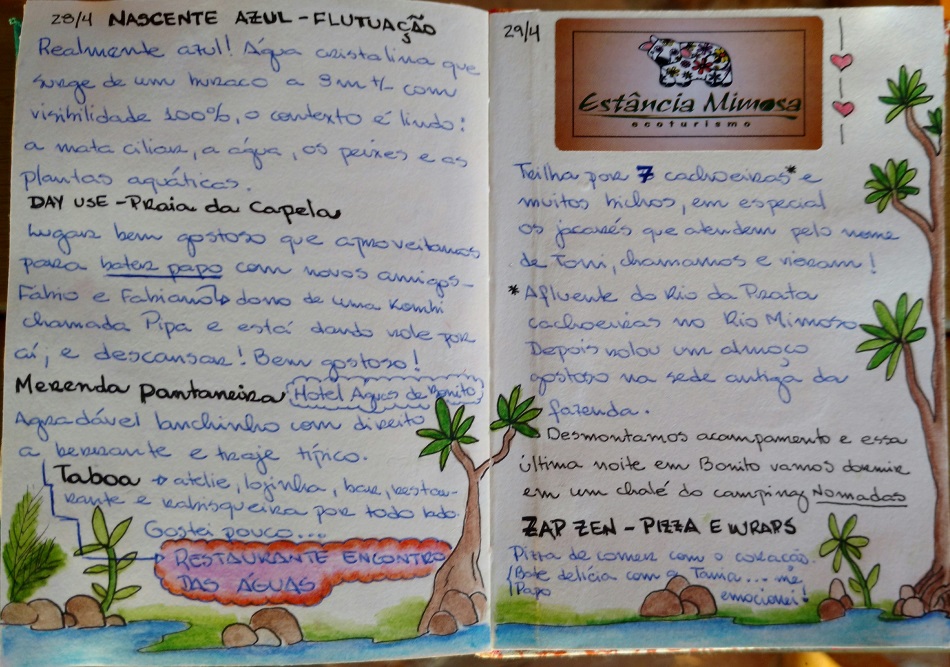 28/4 NASCENTE AZUL - FLUTUAÇÃO
Realmente azul! Água cristalina que
surge de um buraco a 9m +/- com
visibilidade 100%, o contexto é lindo:
a mata ciliar, a água, os peixes e as
plantas aquáticas.
DAY USE - Praia da Capela
Lugar bem gostoso que aproveitamos
para bater papo com novos amigos -
Fabio e Fabiano → dono de uma Kombi
chamada Pipa e está dando role por
aí, e descansar! Bem gostoso!
Merenda Pantaneira Hotel Aguas de Bonito
Agradável lanchinho com direito
a berrante e traje típico.
Taboa → atelie, lojinha, bar, restau-
rante e rabisqueira por todo lado.
Gostei pouco...
RESTAURANTE ENCONTRO
DAS ÁGUAS
29/4
Estância Mimosa
ecoturismo
Trilha por 7 cachoeiras* e
muitos bichos, em especial
os jacarés que atendem pelo nome
de Toni, chamamos e vieram!
* Afluente do Rio da Prata
cachoeiras no Rio Mimoso
Depois rolou um almoço
gostoso na sede antiga da
fazenda.
Desmontamos acampamento e essa
última noite em Bonito vamos dormir
em um chalé do camping Nomadas
ZAP ZEN - PIZZA E WRAPS
Pizza de comer com o coração.
Bate delícia com a Tania... me
Papo emocionei!